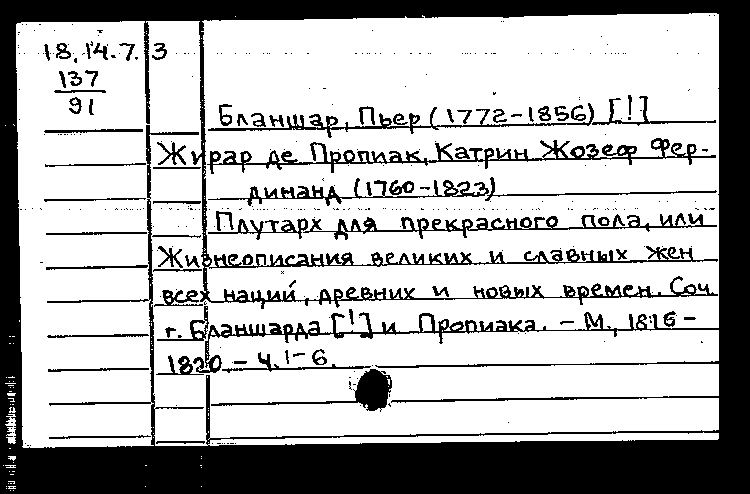 18.14.7.3
137
91
Бланшар, Пьер (1772-1856) [!]
Жирар де Пропиак, Катрин Жозеф Фер-
динанд (1760-1823)
Плутарх для прекрасного пола, или
Жизнеописания великих и славных жен
всех наций, древних и новых времен. Соч.
г. Бланшарда [!] и Пропиака. - М., 1816-
1820. - Ч. 1-6.